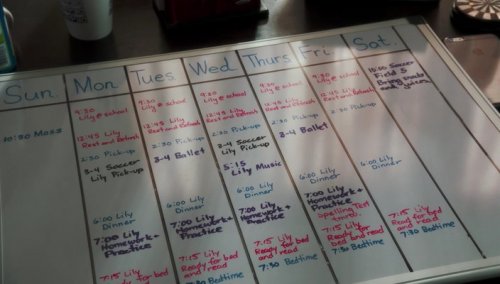 Sun.
Mon
Tues
Wed
Thurs
Fri
Sat.
10:30 Mass
9:30
Lily @ school
12:45 Lily
Rest and Refresh
2:30 Pick-up
3-4 Soccer
Lily Pick-up
6:00 Lily
Dinner
7:00 Lily
Homework+
Practice
7:15 Lily
Ready for bed
and read
9:30
Lily @ school
12:45 Lily
Rest and Refresh
2:30 Pick-up
3-4 Ballet
6:00 Lily
Dinner
7:00 Lily
Homework+
Practice
7:15 Lily
Ready for bed
and read
7:30 Bedtime
9:30
Lily @ school
12:45 Lily
Rest and Refresh
2:30 Pick-up
3-4 Soccer
Lily Pick-up
5:15
Lily Music
6:00 Lily
Dinner
7:00 Lily
Homework+
Practice
7:15 Lily
Ready for bed
and read
7:30 Bedtime
9:30
Lily @ school
12:45 Lily
Rest and Refresh
2:30 Pick-up
3-4 Ballet
6:00 Lily
Dinner
7:00 Lily
Homework+
Practice
7:15 Lily
Ready for bed
and read
7:30 Bedtime
9:30
Lily @ school
12:45 Lily
Rest and Refresh
2:30 Pick-up
6:00 Lily
Dinner
7:00 Lily
Practice
Spelling Test
7:15 Lily
Ready for
bed and read
7:30 Bedtime
10:30 Soccer
Field 5
Bring snack
and juices
6:00 Lily
Dinner
7:15 Lily
Read for bed
and read
7:30 Bedtime